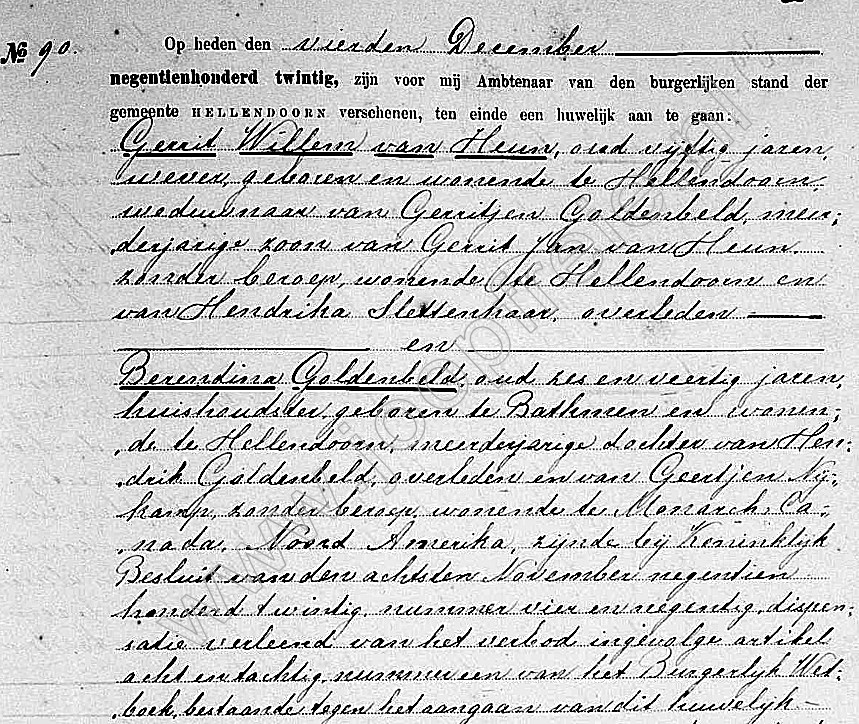 № 90.
Op heden den vierden December
negentienhonderd twintig, zijn voor mij Ambtenaar van den burgerlijken stand der
gemeente HELLENDOORN verschenen, ten einde een huwelijk aan te gaan:
Gerrit Willem van Heun, oud vijftig jaren,
wever, geboren en wonende te Hellendoorn,
weduwnaar van Gerritjen Goldenbeld, meer-
derjarige zoon van Gerrit Jan van Heun,
zonder beroep, wonende te Hellendoorn en
van Hendrika Slettenhaar, overleden
en
Berendina Goldenbeld, oud zes en veertig jaren,
huishoudster, geboren te Bathmen en wonen-
de te Hellendoorn, meerderjarige dochter van Hen-
drik Goldenbeld, overleden en van Geertjen Nij-
kamp, zonder beroep, wonende te Monarch, Ca-
nada, Noord Amerika, zijnde bij Koninklijk
Besluit van den achtsten November negentien
honderd twintig, nummer vier en negentig, dispen-
satie verleend van het verbod ingevolge artikel
acht en tachtig, nummer een van het Burgerlijk Wet-
boek, bestaande tegen het aangaan van dit huwelijk